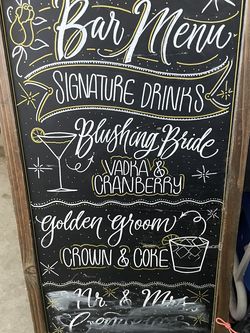 Bar Menu
SIGNATURE DRINKS
Blushing Bride
VADKA &
CRANBERRY
Golden Groom
CROWN & COKE
Mr. & Mrs.